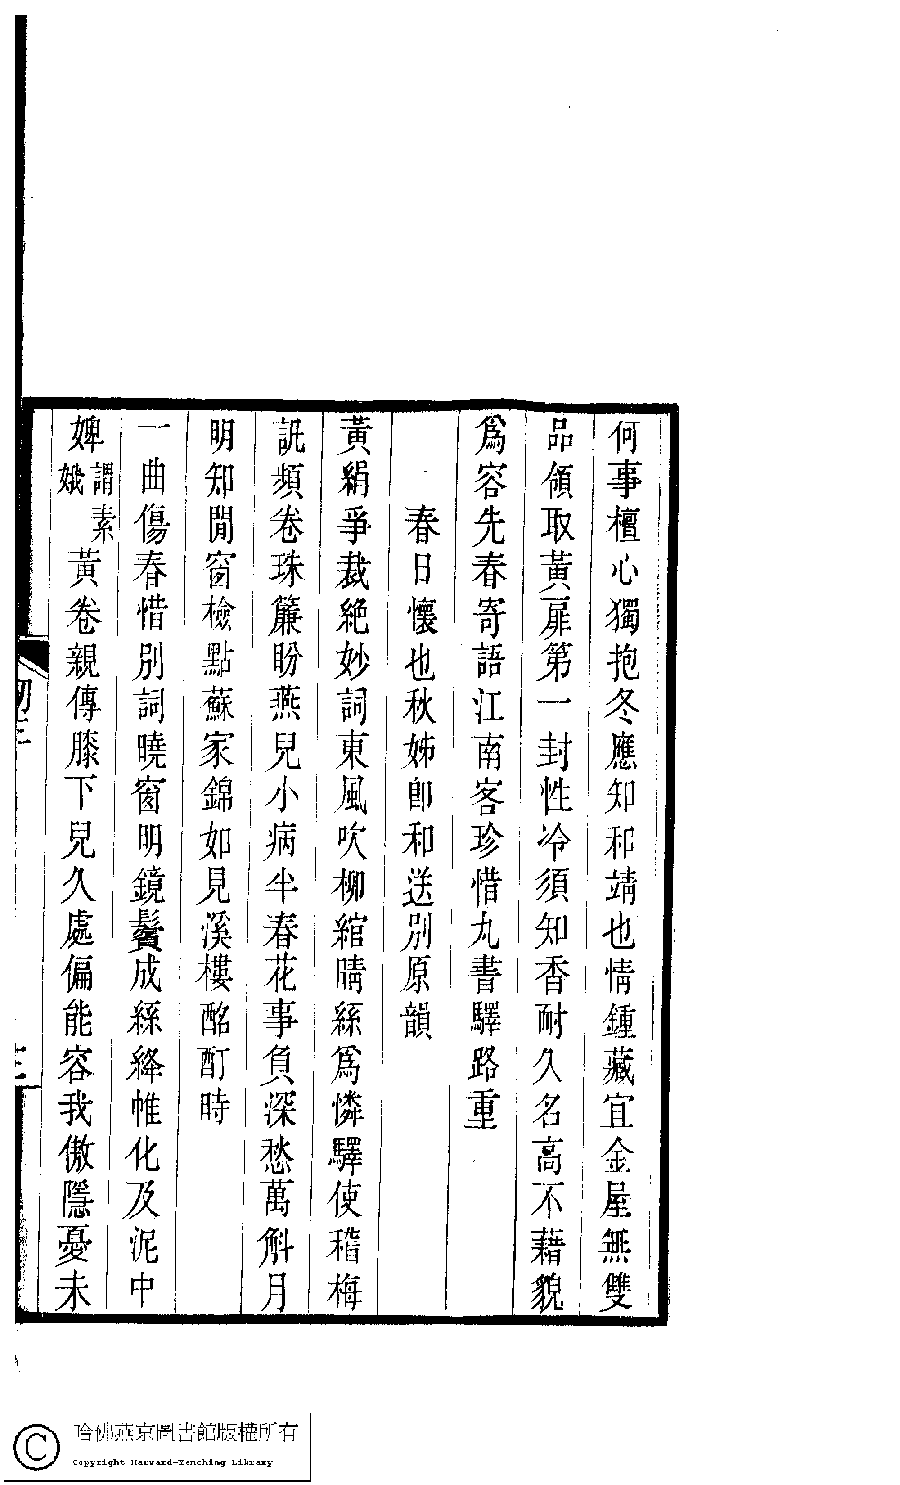 何事檀心獨抱冬應知和靖也情鍾藏宜金屋無雙
品領取黃扉第一封性冷須知香耐久名高不藉貌
爲容先春寄語江南客珍惜丸書驛路重
春日懷也秋姊卽和送別原韻
黃絹爭裁絶妙詞東風吹柳綰晴絲爲憐驛使稽梅
訊頻卷珠簾盼燕兒小病半春花事負深愁萬斛月
明知閒窗檢點蘇家錦如見溪樓酩酊時
一曲傷春惜別詞曉窗明鏡鬢成絲絳帷化及泥中
婢謂素娥黃卷親傳膝下兒久處偏能容我傲隱憂未
哈佛燕京圖書館版權所有
Copyright Harvard-Yenching Library